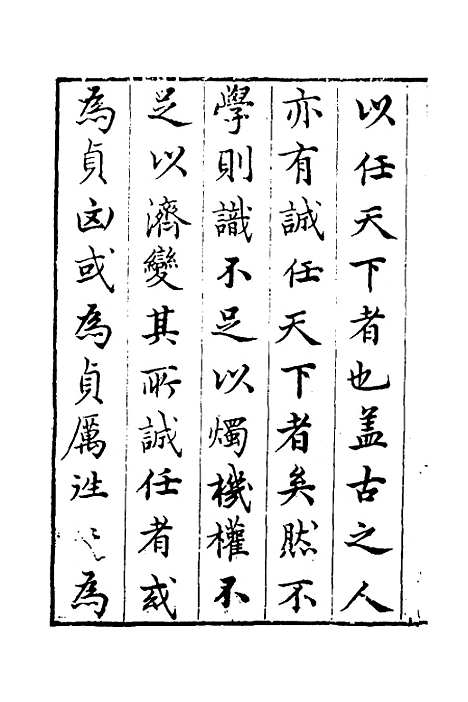 以任天下者也盖古之人
亦有誠任天下者矣然不
學則識不足以燭機權不
足以濟變其所誠任者或
為貞凶或為貞厲徃〻為